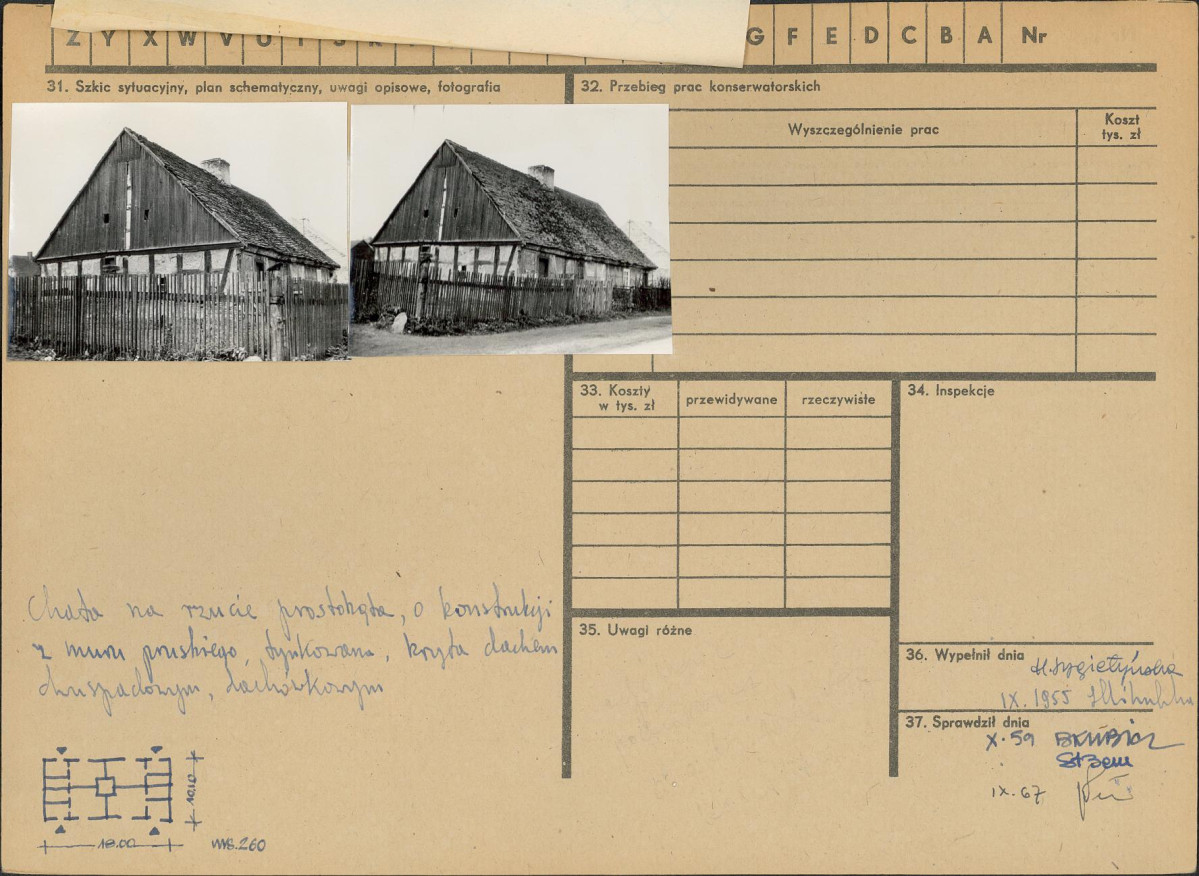 Z Y X W V U T S R G F E D C B A Nr
31. Szkic sytuacyjny, plan schematyczny, uwagi opisowe, fotografia
32. Przebieg prac konserwatorskich
Wyszczególnienie prac
Koszt
tys. zł
33. Koszty
w tys. zł
przewidywane
rzeczywiste
34. Inspekcje
Chata na rzucie prostokąta, o konstrukcji
z muru pruskiego, tynkowana, kryta dachem
dwuspadowym, dachówkowym
10,10
18.00
35. Uwagi różne
36. Wypełnił dnia
IX. 1955
37. Sprawdził dnia
X. 59
IX. 67